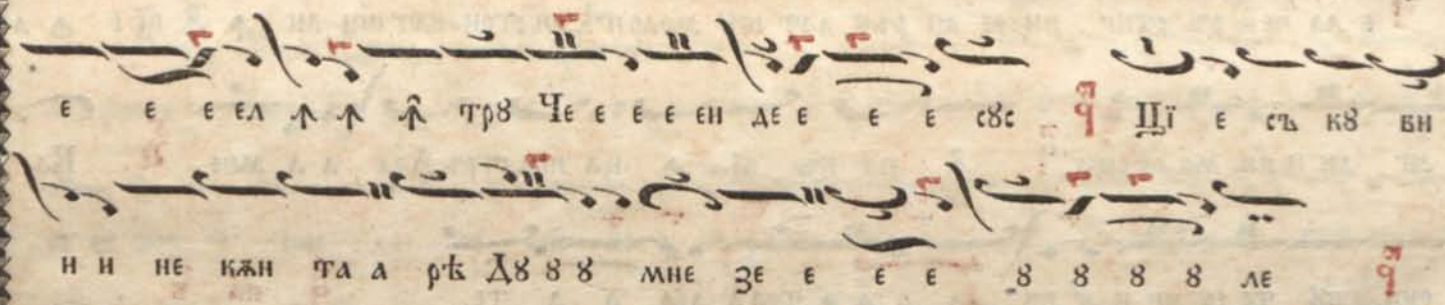 е е е ел ꙟ ꙟ ꙟ̂ трꙋ Че е е е ен де е е е сꙋс Цїе съ кꙋ ви
и и не кѫн та а рѣ Дꙋ ꙋ ꙋ мне Зе е е е е ꙋ ꙋ ꙋ ꙋ ле